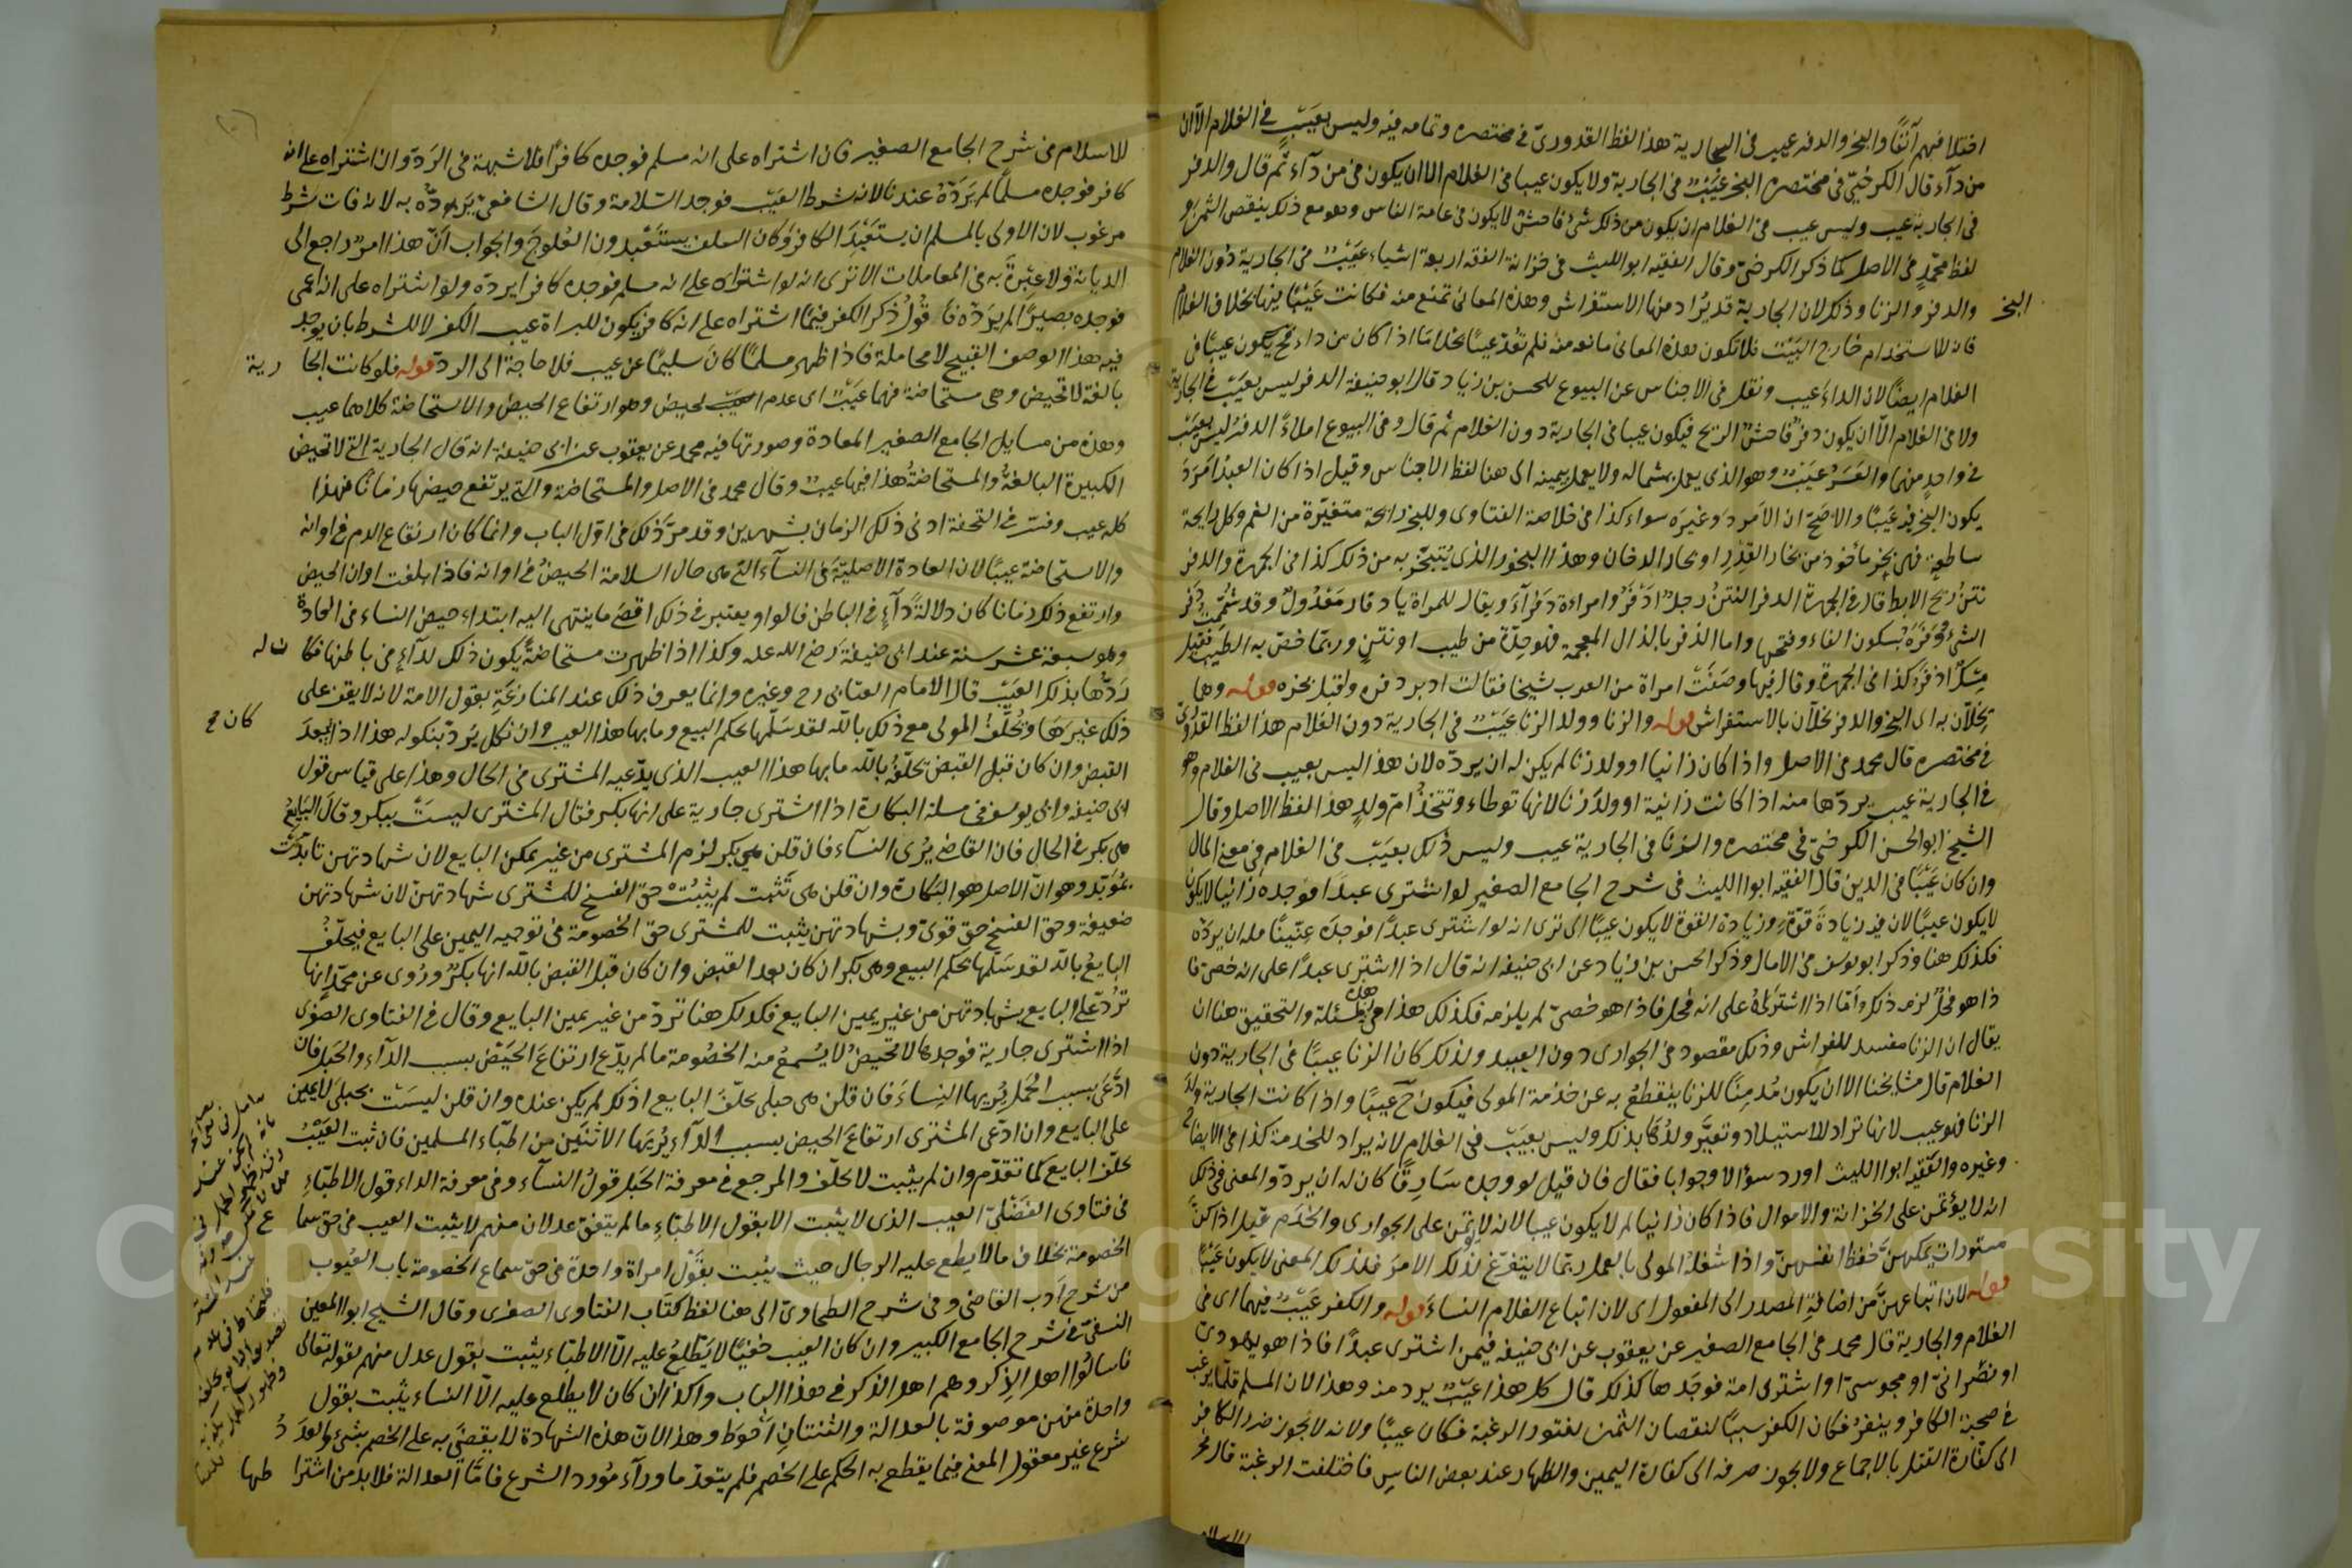 اختلافهم آنفًا والبخر والدفر عيب في الجارية هذا لفظ القدوري في مختصره وتمامه فيه وليس بعيب في الغلام الا ان
من دآء قال الكرخي في مختصره البخر عيب في الجارية ولا يكون عيبا في الغلام الا ان يكون من دآء ثم قال والدفر
في الجارية عيب وليس عيب في الغلام ان يكون من ذلك شئ فاحش لا يكون في عامة الناس وهو مع ذلك ينقص الثمن و
لفظ محمد في الاصل كما ذكر الكرخي وقال الفقيه ابو الليث في خزانة الفقه اربعة اشياء عيب في الجارية دون الغلام
البخر
والدفر والزنا وذلك لان الجارية قد يُراد منها الاستفراش وهذه المعاني تمنع منه فكانت عيبًا فيها بخلاف الغلام
فانه للاستخدام خارج البيت فلا تكون هذه المعاني مانعه منه فلم تعد عيبًا بخلاف ما اذا كان من داء يكون عيبًا في
الغلام ايضًا لان الداء عيب ونقل في الاجناس عن البيوع للحسن بن زياد قال ابو حنيفة الدفر ليس بعيب في الجارية
ولا في الغلام الا ان يكون دفر فاحش الريح فيكون عيبا في الجارية دون الغلام ثم قال وفي البيوع املاءً الدفر ليس بعيب
في واحد منهما والعسر عيب وهو الذي يعمل بشماله ولا يعمل بيمينه الى هنا لفظ الاجناس وقيل اذا كان العبد امرد
يكون البخر فيه عيبًا والاصح ان الامرد وغيره سواء كذا في خلاصة الفتاوى والبخر رائحة متغيرة من الفم وكل رايحة
ساطعة فهي بخر مأخوذ من بخار القدر او بخار الدخان وهذا البخور الذي يُتبخر به من ذلك كذا في الجمهرة والدفر
نتن ريح الابط قال في الجمهرة الدفر النتن رجل ادفر وامراءة دفرآء ويقال للمراة يا دفار معدول وقد شممت دفر
الشئ ودفره بسكون الفاء وفتحها واما الذفر بالذال المعجمة فهو حدة من طيب او نتن وربما خص به الطيب فقيل
مسك اذفر كذا في الجمهرة وقال فيها وصفت امراة من العرب شيخا فقالت ادبر دفره واقبل بخره قوله وهما
يخلان به اى البخر والدفر يخلان بالاستفراش قوله والزنا وولد الزنا عيب في الجارية دون الغلام هذا لفظ القدورى
في مختصره قال محمد في الاصل واذا كان زانيا او ولد زنا لم يكن له ان يرده لان هذا ليس بعيب في الغلام وهو
في الجارية عيب يردها منه اذا كانت زانية او ولد زنا لانها توطاء وتتخذ ام ولد هذا لفظ الاصل وقال
الشيخ ابو الحسن الكرخي في مختصره والزنا في الجارية عيب وليس ذلك بعيب في الغلام في معنى المال
وان كان عيبًا في الدين قال الفقيه ابو الليث في شرح الجامع الصغير لو اشترى عبدًا فوجده زانيا لا يكون
لا يكون عيبًا لان فيه زيادة قوة وزيادة القوة لا يكون عيبًا الى ترى انه لو اشترى عبدًا فوجده عنينًا فله ان يرده
فكذلك هنا وذكر ابو يوسف في الامالي وذكر الحسن بن زياد عن ابي حنيفه انه قال اذا اشترى عبدًا على انه خصى فا
ذا هو فحل لزمه ذلك واما اذا اشتراه على انه فحل فاذا هو خصى لم يلزمه فكذلك هذا في هذه المسئلة والتحقيق هنا ان
يقال ان الزنا مفسد للفراش وذلك مقصود في الجوارى دون العبيد ولذلك كان الزنا عيبًا في الجارية دون
الغلام قال مشايخنا الا ان يكون مُدمنًا للزنا ينقطع به عن خدمة المولى فيكون ح عيبًا واذا كانت الجارية ولد
الزنا فهو عيب لانها تراد للاستيلاد وتعير ولدها بذلك وليس بعيب في الغلام لانه يراد للخدمة كذا في الايضاح
وغيره والفقيه ابو الليث اورد سؤالا وجوابا فقال فان قيل لو وجده سارقًا كان له ان يرد والمعنى في ذلك
انه لا يؤتمن على الخزانة والاموال فاذا كان زانيا لم لا يكون عيبا لانه لا يؤتمن على الجوارى والخدم قيل اذا كن
مستورات يمكنهن حفظ انفسهن واذا شغله المولى بالعمل ربما لا يتفرغ لذلك الامر فلذلك المعنى لا يكون عيبًا
قوله لان اتباعهن من اضافة المصدر الى المفعول اى لان اتباع الغلام النساء قوله والكفر عيب فيهما اى في
الغلام والجارية قال محمد في الجامع الصغير عن يعقوب عن ابي حنيفه فيمن اشترى عبدًا فاذا هو يهودى
او نصراني او مجوسى او اشترى امة فوجدها كذلك قال كل هذا عيب يرد منه وهذا لان المسلم قلما يرغب
في صحبة الكافر وينفر فكان الكفر سببًا لنقصان الثمن لفتور الرغبة فكان عيبًا ولانه لا يجوز صرف الكافر
الى كفارة القتل بالاجماع ولا يجوز صرفه الى كفارة اليمين والظهار عند بعض الناس فاختلفت الرغبة قال فخر
الاسلام
للاسلام في شرح الجامع الصغير فان اشتراه على انه مسلم فوجده كافرًا فلا شبهة في الرد وان اشتراه على انه
كافر فوجده مسلمًا لم يرده عندنا لانه شرط العيب فوجد السلامة وقال الشافعي يرده به لانه فات شرط
مرغوب لان الاولى بالمسلم ان يستعبد الكافر وكان السلف يستعبدون العلوج والجواب ان هذا امر راجع الى
الديانة ولا عبرة به في المعاملات الا ترى انه لو اشتراه على انه مسلم فوجده كافرا يرده ولو اشتراه على انه اعمى
فوجده بصيرًا لم يرده فا قول ذكر الكفر فيما اشتراه على انه كافر يكون للبراة عيب الكفر لا للشرط بان يوجد
فيه هذا الوصف القبيح لا محاملة فاذا ظهر مسلمًا كان سليمًا عن عيب فلا حاجة الى الرد قوله فلو كانت الجا رية
بالغة لا تحيض وهى مستحاضة فهما عيب اى عدم الحيض وهو ارتفاع الحيض والاستحاضة كلاهما عيب
وهذه من مسايل الجامع الصغير المعادة وصورتها فيه محمد عن يعقوب عن ابي حنيفة انه قال الجارية التي لا تحيض
الكبيرة البالغة والمستحاضة هذا فيها عيب وقال محمد في الاصل والمستحاضة والتي يرتفع حيضها زمانًا فهذا
كله عيب وفسر في التحفة ادنى ذلك الزمان بشهرين وقد مر ذلك في اول الباب وانما كان ارتفاع الدم في اوانه
والاستحاضة عيبًا لان العادة الاصلية في النسآء التي هى حال السلامة الحيض في اوانه فاذا بلغت اوان الحيض
وارتفع ذلك زمانا كان دلالة دآءٍ في الباطن قالوا ويعتبر في ذلك اقصى ما ينتهى اليه ابتداء حيض النساء في العادة
وهو سبعة عشر سنة عند ابي حنيفة رضى الله عنه وكذا اذا ظهرت مستحاضة يكون ذلك لدآءٍ في باطنها فكا نت له
ردها بذلك العيب قال الامام العتابي رح وغيره وانما يعرف ذلك عند المنازعة بقول الامة لانه لا يقف على
كان ح
ذلك غيرها وتُحلف المولى مع ذلك بالله لقد سلمها بحكم البيع وما بها هذا العيب وان نكل يرد بنكوله هذا اذا بعد
القبض وان كان قبل القبض تحلفه بالله ما بها هذا العيب الذى يدعيه المشترى في الحال وهذا على قياس قول
ابي حنيفه وابي يوسف في مسلة البكارة اذا اشترى جارية على انها بكر فقال المشترى ليست ببكر وقال البايع
هى بكر في الحال فان القاضى يُرى النسآء فان قلن هى بكر لزم المشترى من غير يمين البايع لان شهادتهن تايدت
بمؤيد وهو ان الاصل هو البكارة وان قلن هى ثيب لم يثبت حق الفسخ للمشترى شهادتهن لان شهادتهن
ضعيفة وحق الفسخ حق قوى وبشهادتهن يثبت للمشترى حق الخصومة في توجيه اليمين على البايع فيحلف
البايع بالله لقد سلمها بحكم البيع وهى بكر ان كان بعد القبض وان كان قبل القبض بالله انها بكر وروى عن محمد انها
تُرد على البايع بشهادتهن من غير يمين البايع فكذلك هنا ترد من غير يمين البايع وقال في الفتاوى الصغرى
اذا اشترى جارية فوجدها لا تحيض لا يُسمع منه الخصومة ما لم يدع ارتفاع الحيض بسبب الدآء والحبل فان
ادعى بسبب الحمل يُريها النساء فان قلن هى حبلى يحلف البايع ان ذلك لم يكن عنده وان قلن ليست بحبلى لا يمين
على البايع وان ادعى المشترى ارتفاع الحيض بسبب الدآء يريها الاثنين من اطباء المسلمين فان ثبت العيب
يحلف البايع كما تقدم وان لم يثبت لا يحلف والمرجع في معرفة الحبل قول النسآء وفي معرفة الداء قول الاطباء
في فتاوى الفضلى العيب الذى لا يثبت الا بقول الاطباء ما لم يتفق عدلان منهم لا يثبت العيب في حق سما ع
الخصومة بخلاف ما لا يطلع عليه الرجال حيث يثبت بقول امراة واحدة في حق سماع الخصومة باب العيوب
من شرح ادب القاضي وفي شرح الطحاوى الى هنا لفظ كتاب الفتاوى الصغرى وقال الشيخ ابو المعين
النسفي في شرح الجامع الكبير وان كان العيب خفيًا لا يطلع عليه الا الاطباء يثبت بقول عدل منهم لقوله تعالى
فاسالوا اهل الذكر وهم اهل الذكر في هذا الباب واكذا ان كان لا يطلع عليه الا النساء يثبت بقول
واحدة منهن موصوفة بالعدالة والثنتان احوط وهذا لان هذه الشهادة لا يقضى به على الخصم بشئ والعد د
شرع غير معقول المعنى فيما يقطع به الحكم على الخصم فلم يتعد ما ورآء مورد الشرع فاما العدالة فلا بد من اشترا طها
Copyright © King Saud University